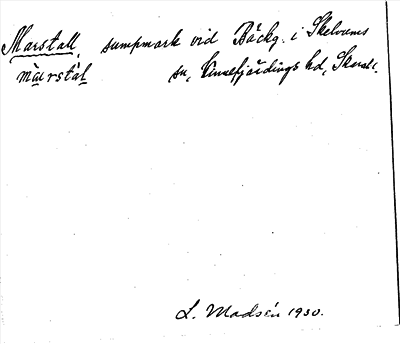 Marstall, sumpmark vid Bäckg. i Skelvums
màrstàl sn, Kinnefjärdings hd, Skarab.
L. Madsén 1930.